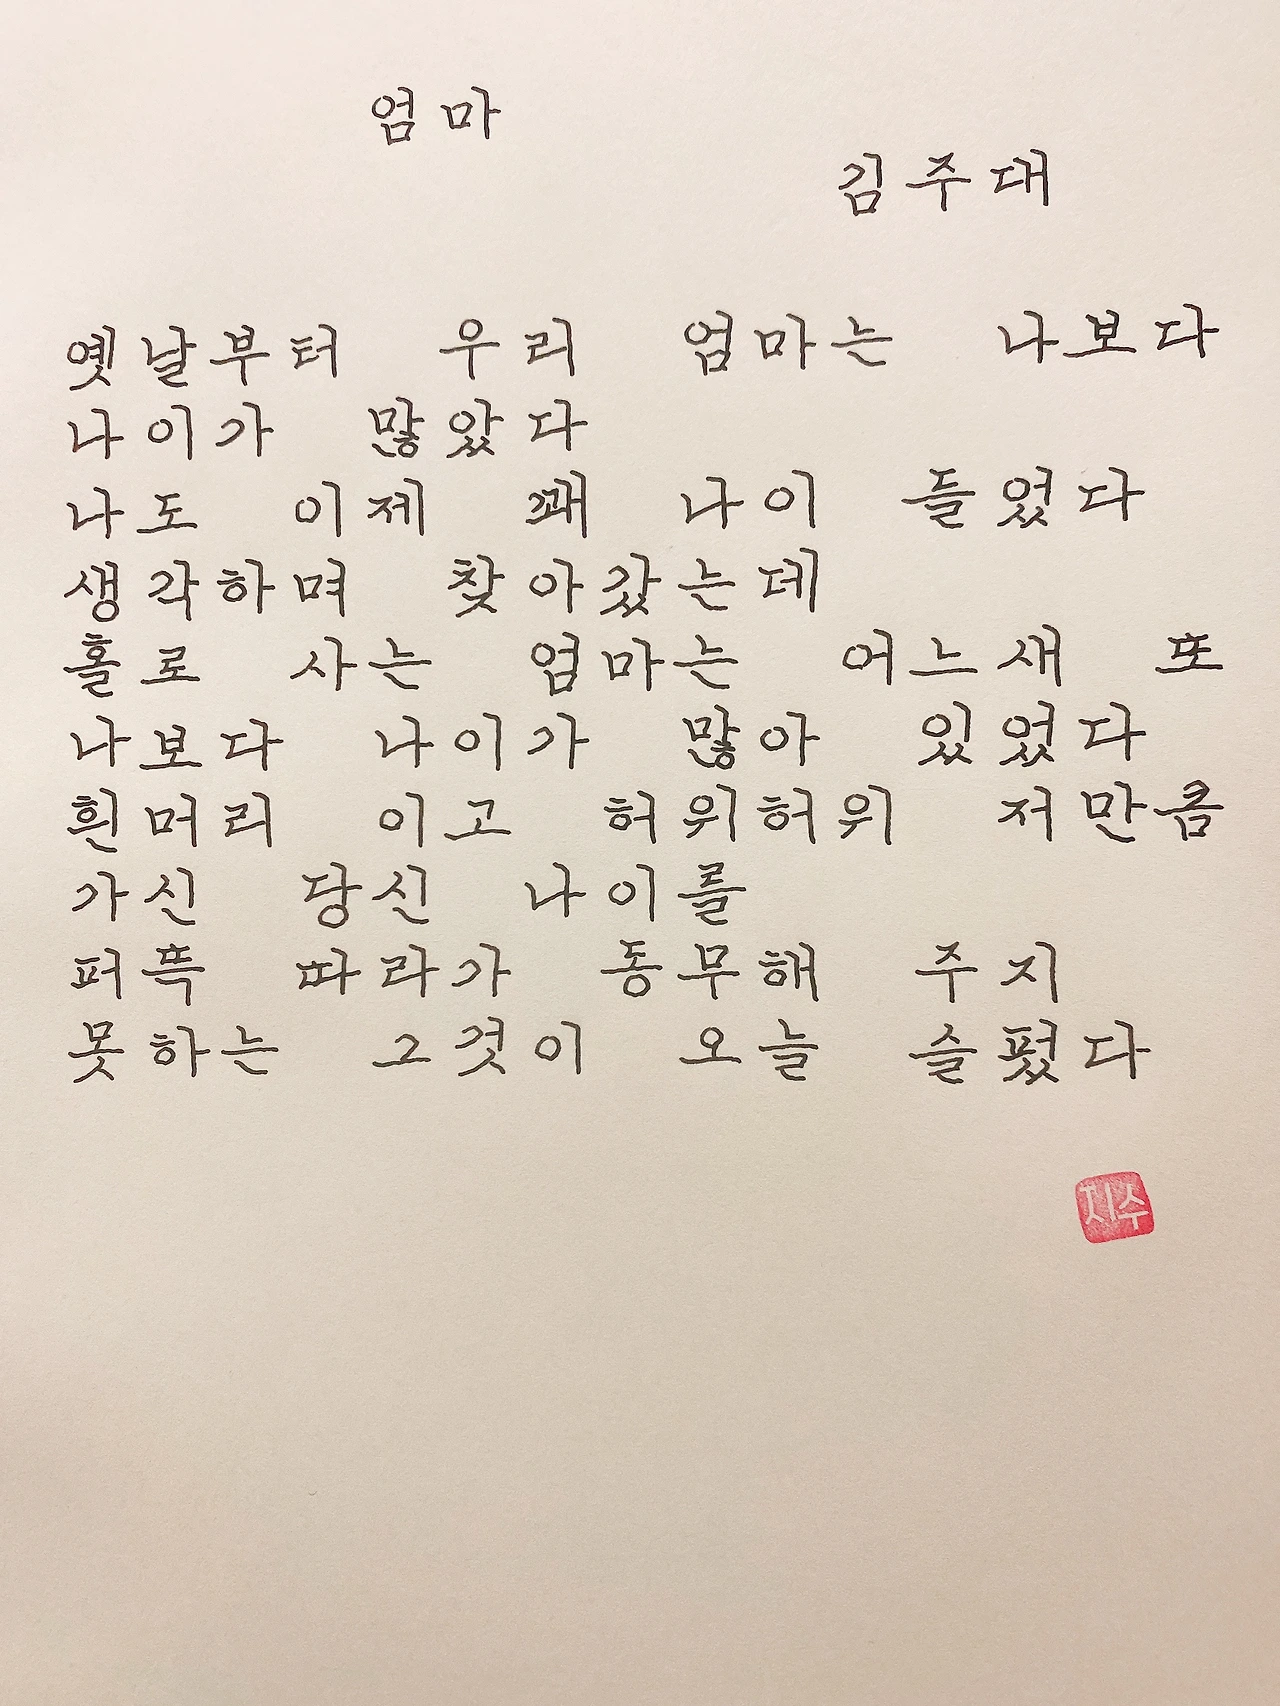 엄마
김주대
옛날부터 우리 엄마는 나보다
나이가 많았다
나도 이제 꽤 나이 들었다
생각하며 찾아갔는데
홀로 사는 엄마는 어느새 또
나보다 나이가 많아 있었다
흰머리 이고 허위허위 저만큼
가신 당신 나이를
퍼뜩 따라가 동무해 주지
못하는 그것이 오늘 슬펐다
지수